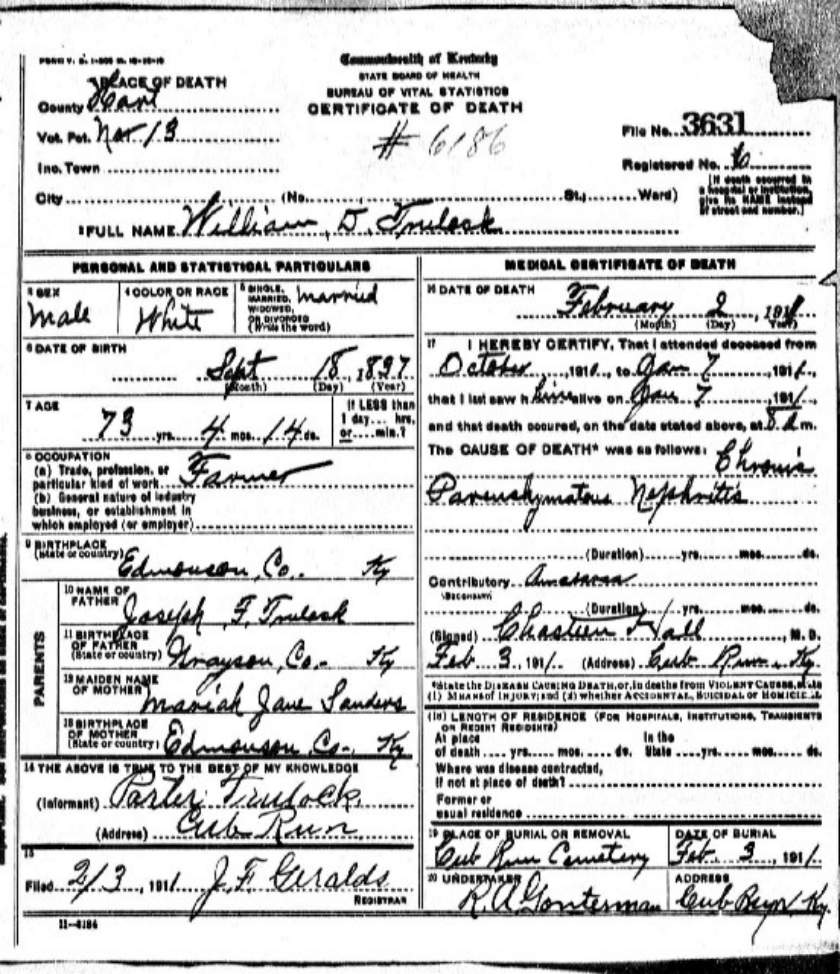 FORM V. S. 1-
Commonwealth of Kentucky
STATE BOARD OF HEALTH
BUREAU OF VITAL STATISTICS
CERTIFICATE OF DEATH
PLACE OF DEATH
County Hart
Vot. Pct. No 13
# 6186
File No. 3631
Inc. Town
Registered No. 6
[If death occurred in a hospital or institution, give its NAME instead of street and number.]
City (No. St.; Ward)
2 FULL NAME William D. Trulock
PERSONAL AND STATISTICAL PARTICULARS
3 SEX Male
4 COLOR OR RACE White
5 SINGLE, MARRIED, WIDOWED, OR DIVORCED (Write the word) Married
6 DATE OF BIRTH
Sept 18, 1837
(Month) (Day) (Year)
7 AGE
73 yrs. 4 mos. 14 ds.
If LESS than 1 day... hrs. or.... min.?
8 OCCUPATION
(a) Trade, profession, or particular kind of work Farmer
(b) General nature of industry
business, or establishment in
which employed (or employer)
9 BIRTHPLACE
(State or country) Edmonson, Co. Ky
PARENTS
10 NAME OF FATHER Joseph F. Trulock
11 BIRTHPLACE OF FATHER (State or country) Grayson, Co- Ky
12 MAIDEN NAME OF MOTHER Mariah Jane Sanders
13 BIRTHPLACE OF MOTHER (State or country) Edmonson Co-, Ky
14 THE ABOVE IS TRUE TO THE BEST OF MY KNOWLEDGE
(Informant) Porter Trulock
(Address) Cub Run
15
Filed 2/3, 1911 J. F. Geralds
REGISTRAR
11-3184
MEDICAL CERTIFICATE OF DEATH
16 DATE OF DEATH
February 2, 1911
(Month) (Day) (Year)
17 I HEREBY CERTIFY, That I attended deceased from
October, 1910, to Jan 7, 1911,
that I last saw him alive on Jan 7, 1911,
and that death occured, on the date stated above, at 8 m.
The CAUSE OF DEATH* was as follows: Chronic
Parenchymatous Nephritis
(Duration) yrs. mos. ds.
Contributory Anasarca
(SECONDARY)
(Duration) yrs. mos. ds.
(Signed) Chasteen Hall, M. D.
Feb 3, 1911. (Address) Cub Run, Ky.
*State the DISEASE CAUSING DEATH, or, in deaths from VIOLENT CAUSES, state
(1) MEANS OF INJURY; and (2) whether ACCIDENTAL, SUICIDAL or HOMICIDAL
(18) LENGTH OF RESIDENCE (FOR HOSPITALS, INSTITUTIONS, TRANSIENTS
OR RECENT RESIDENTS)
At place In the
of death yrs. mos. ds. State yrs. mos. ds.
Where was disease contracted,
If not at place of death?
Former or
usual residence
19 PLACE OF BURIAL OR REMOVAL DATE OF BURIAL
Cub Run Cemetery Feb 3, 1911
20 UNDERTAKER ADDRESS
R. A. Gonterman Cub Run Ky.